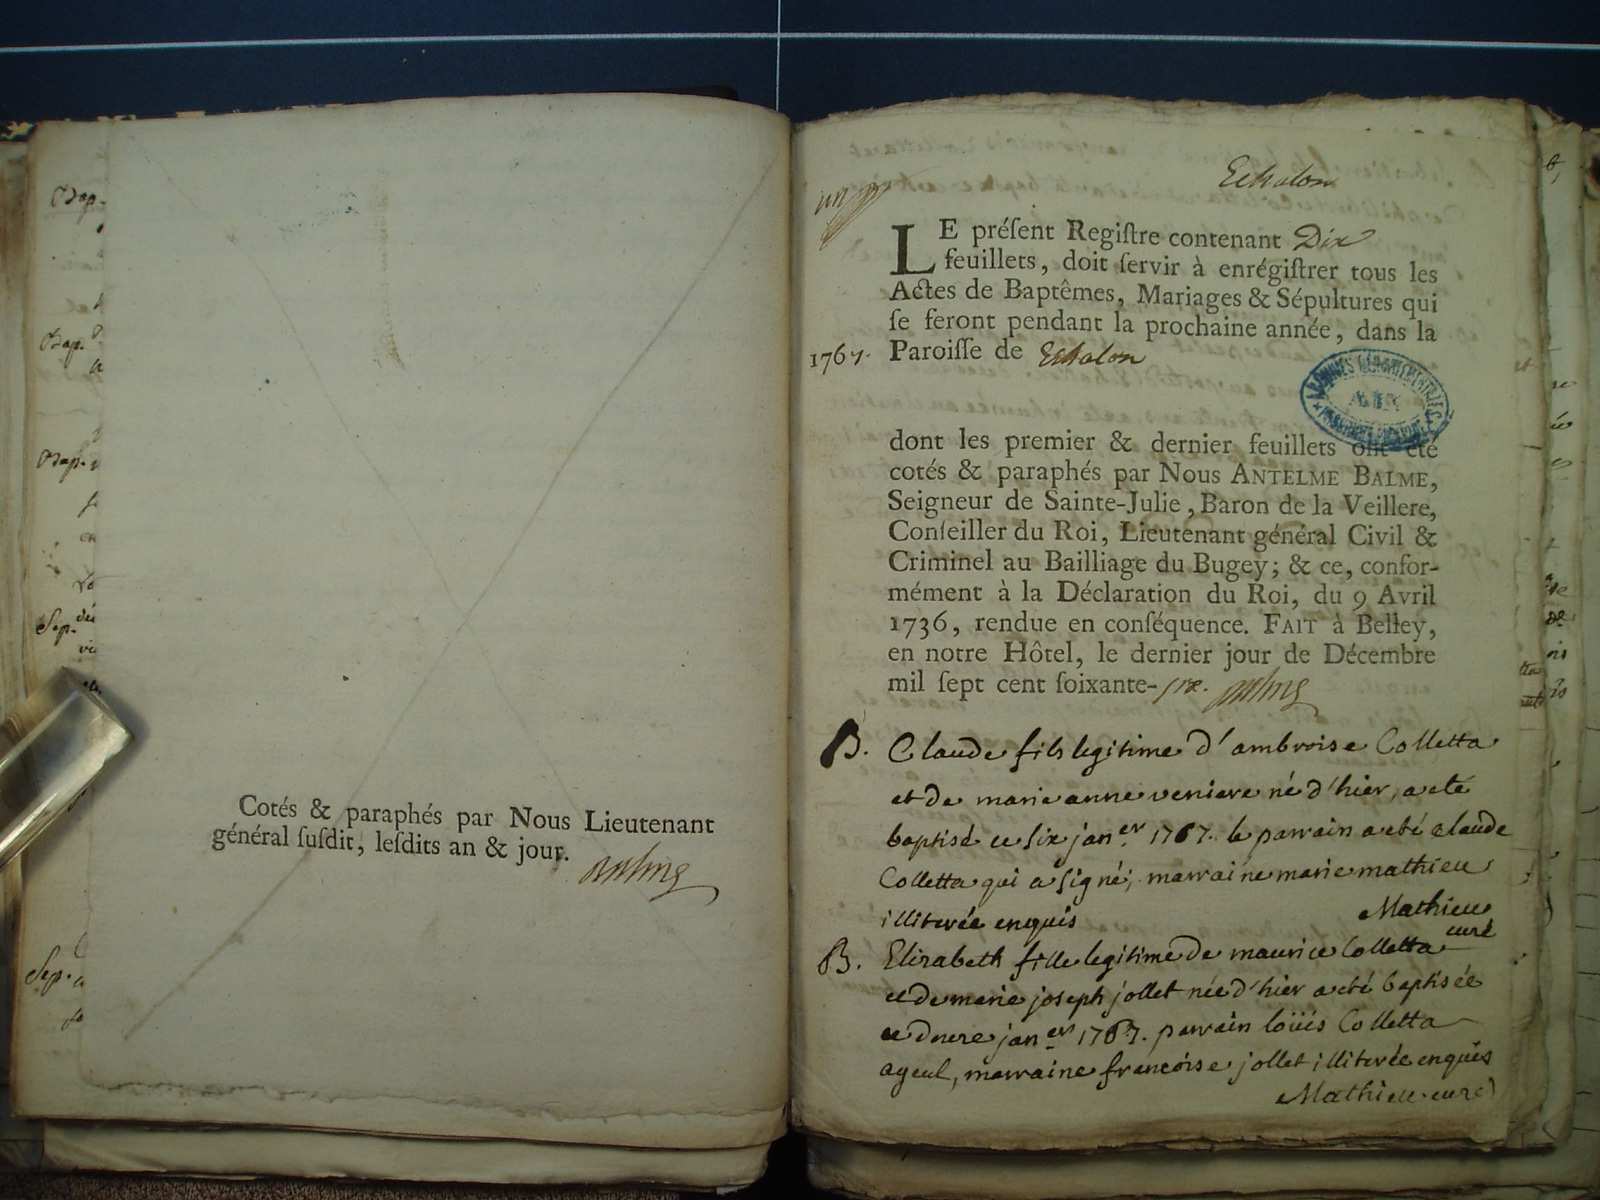 Bap.
Bap.
Bap.
Sep.
Sep.
Cotés & paraphés par Nous Lieutenant
général ſuſdit, leſdits an & jour.
Echalon
un
LE préſent Regiſtre contenant Dix
feuillets, doit ſervir à enrégiſtrer tous les
Actes de Baptêmes, Mariages & Sépultures qui
ſe feront pendant la prochaine année, dans la
1767. Paroiſſe de Echalon
ARCHIVES DÉPARTEMENTALES
AIN
dont les premier & dernier feuillets ont été
cotés & paraphés par Nous ANTELME BALME,
Seigneur de Sainte-Julie, Baron de la Veillere,
Conſeiller du Roi, Lieutenant général Civil &
Criminel au Bailliage du Bugey; & ce, confor-
mément à la Déclaration du Roi, du 9 Avril
1736, rendue en conſéquence. FAIT à Belley,
en notre Hôtel, le dernier jour de Décembre
mil ſept cent ſoixante-six.
B. Claude fils legitime d'ambroise Colletta
et de marie anne veniere né d'hier, a eté
baptisé ce six jan.er 1767. le parrain a eté claude
Colletta qui a signé; marraine marie mathieu
illiterée enquis Mathieu
curé
B. Elizabeth fille legitime de maurice Colletta
et de marie joseph jollet née d'hier a eté baptisée
ce douze jan.er 1767. parrain loüis Colletta
ayeul, marraine francoise jollet illiterée enquis
Mathieu curé